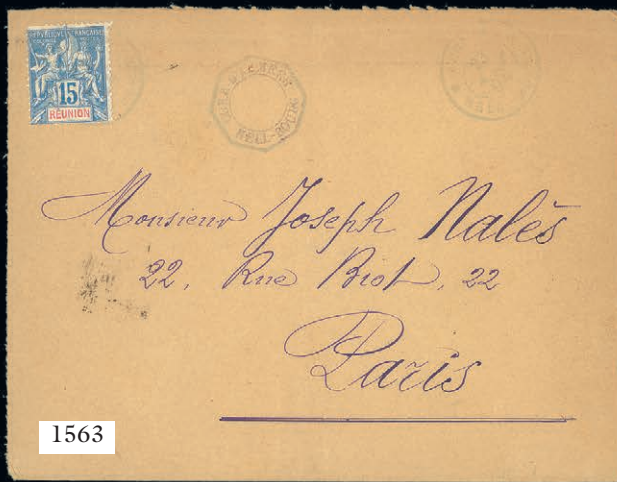 RÉPUBLIQUE FRANÇAISE
15
RÉUNION
Monsieur Joseph Nalès
22, Rue Biot, 22
Paris
1563